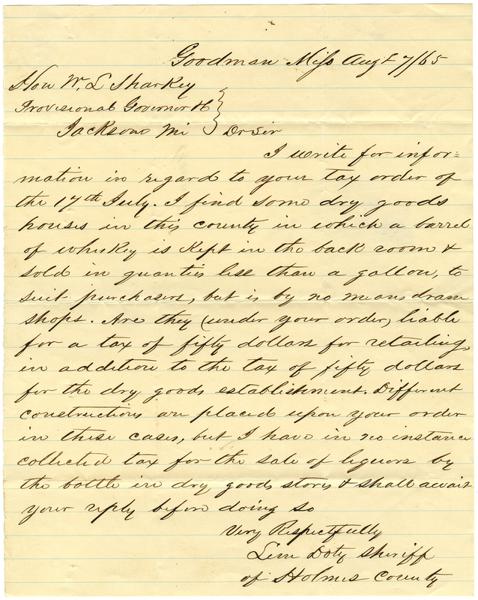 Goodman Miss Augt 7/65
Hon W. L Sharkey
Provisional Governor &c
Jackson Mi
Dr Sir
I write for infor=
mation in regard to your tax order of
the 17th July. I find some dry goods
houses in this county in which a barrel
of whiskey is kept in the back room &
sold in quanties less than a gallon, to
suit purchasers, but is by no means dram
shops. Are they (under your order) liable
for a tax of fifty dollars for retailing
in addition to the tax of fifty dollars
for the dry goods establishment. Different
constructions are placed upon your order
in these cases, but I have in no instance
collected tax for the sale of liquors by
the bottle in dry goods stores & shall await
your reply before doing so
Very Respectfully
Lem Doty Sheriff
of Holmes County